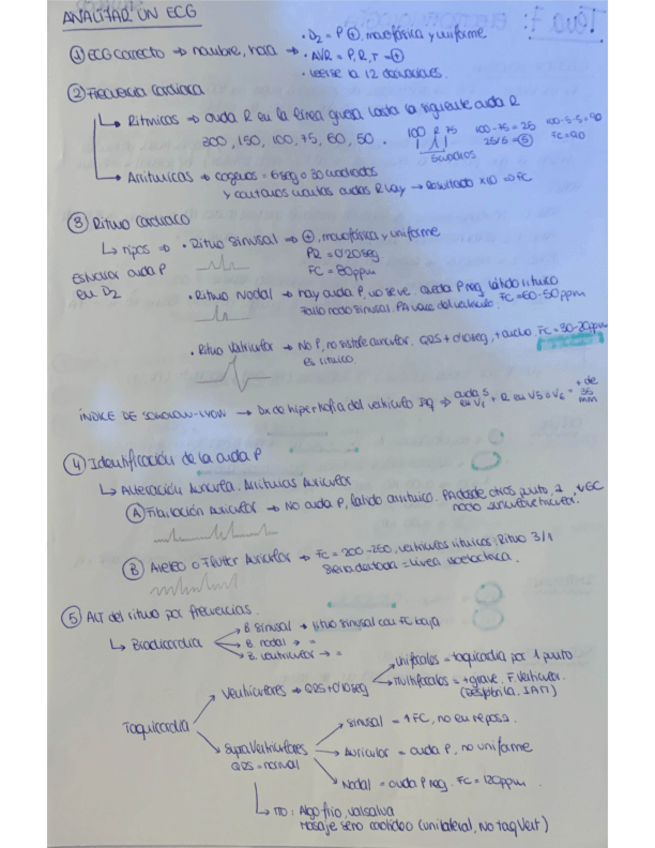 ANALIZAR UN ECG
① ECG correcto → nombre, hora → • D2 = P ⊕, monofásica y uniforme
• AVR = P, R, T = ⊖
• leerse la 12 derivaciones.
② Frecuencia Cardiaca
↳ Rítmicas → onda R en la línea gruesa hasta la siguiente onda R
300, 150, 100, 75, 60, 50.
100 R 75
5 cuadros
100-75 = 25
25/5 = ⑤
100-5-5=90
FC=90
↳ Arrítmicas → cogemos = 6seg o 30 cuadrados
y contamos cuantas ondas R hay → Resultado x10 = FC
③ Ritmo Cardiaco
↳ Tipos → • Ritmo Sinusal → ⊕, monofásica y uniforme
PR = 0'20seg
FC = 80ppm
Estudiar onda P
en D2
• Ritmo Nodal → hay onda P, no se ve. Onda P neg. latido rítmico
Fallo nodo sinusal. FC = 60-50ppm
• Ritmo Ventricular → No P, no existe auricular. QRS + 0'10seg, + ancho. FC = 30-20ppm
es rítmico.
ÍNDICE DE SOKOLOW-LYON → Dx de hipertrofia del ventrículo izq → onda S en V1 + R en V5 o V6 = + de 35 mm
④ Identificación de la onda P
↳ Alteración Auricula. Arritmias Auricular
Ⓐ Fibrilación Auricular → No onda P, latido arrítmico. PA desde otros punto,
Ⓑ Aleteo o Flutter Auricular → FC = 200-250, ventriculos rítmicos, Ritmo 3/1
Sierra dentada = Linea isoelectrica.
⑤ Alt del ritmo por frecuencias.
↳ Bradicardia
B. Sinusal → ritmo sinusal con FC baja
B. nodal → =
B. ventricular → =
Taquicardia
Ventriculares → QRS + 0'10seg
unifocales = taquicardia por 1 punto
multifocales = + grave. F. Ventricular.
SupraVentriculares
QRS = normal
Sinusal = ↑FC, no en reposo.
Auricular = onda P, no uniforme
Nodal = onda P neg. FC = 120ppm.
↳ TTO: Algo frío, valsalva
Masaje seno carotídeo (unilateral, No taq Vent)